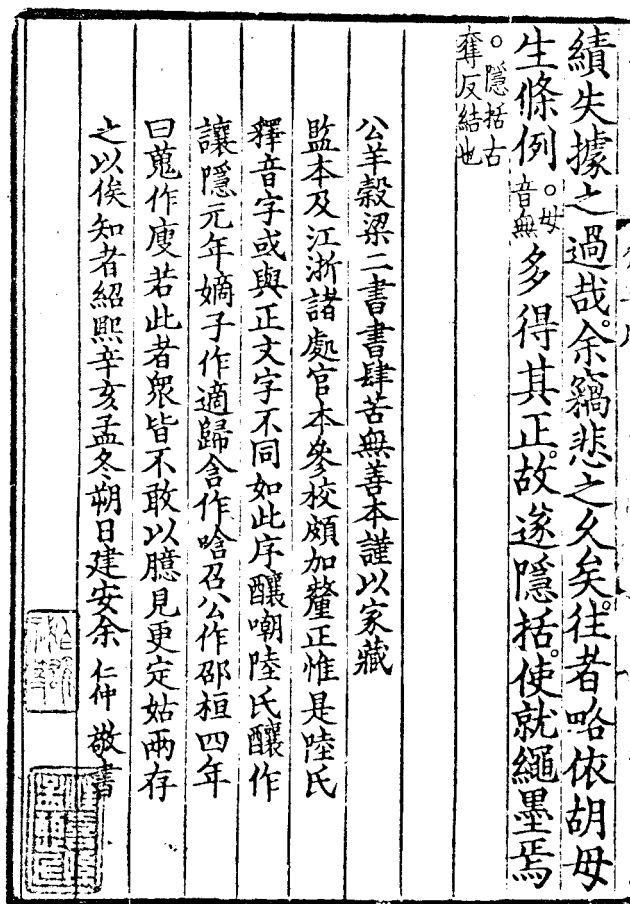 績失據之過哉余竊悲之久矣往者略依胡毋
生條例○毋音無多得其正故遂隱括使就繩墨焉
○隱括古奪反結也
公羊穀梁二書書肆苦無善本謹以家藏
監本及江浙諸處官本參校頗加釐正惟是陸氏
釋音字或與正文字不同如此序釀嘲陸氏釀作
讓隱元年嫡子作適歸含作唅召公作邵桓四年
曰蒐作廋若此者眾皆不敢以臆見更定姑兩存
之以俟知者紹熙辛亥孟冬朔日建安余仁仲敬書